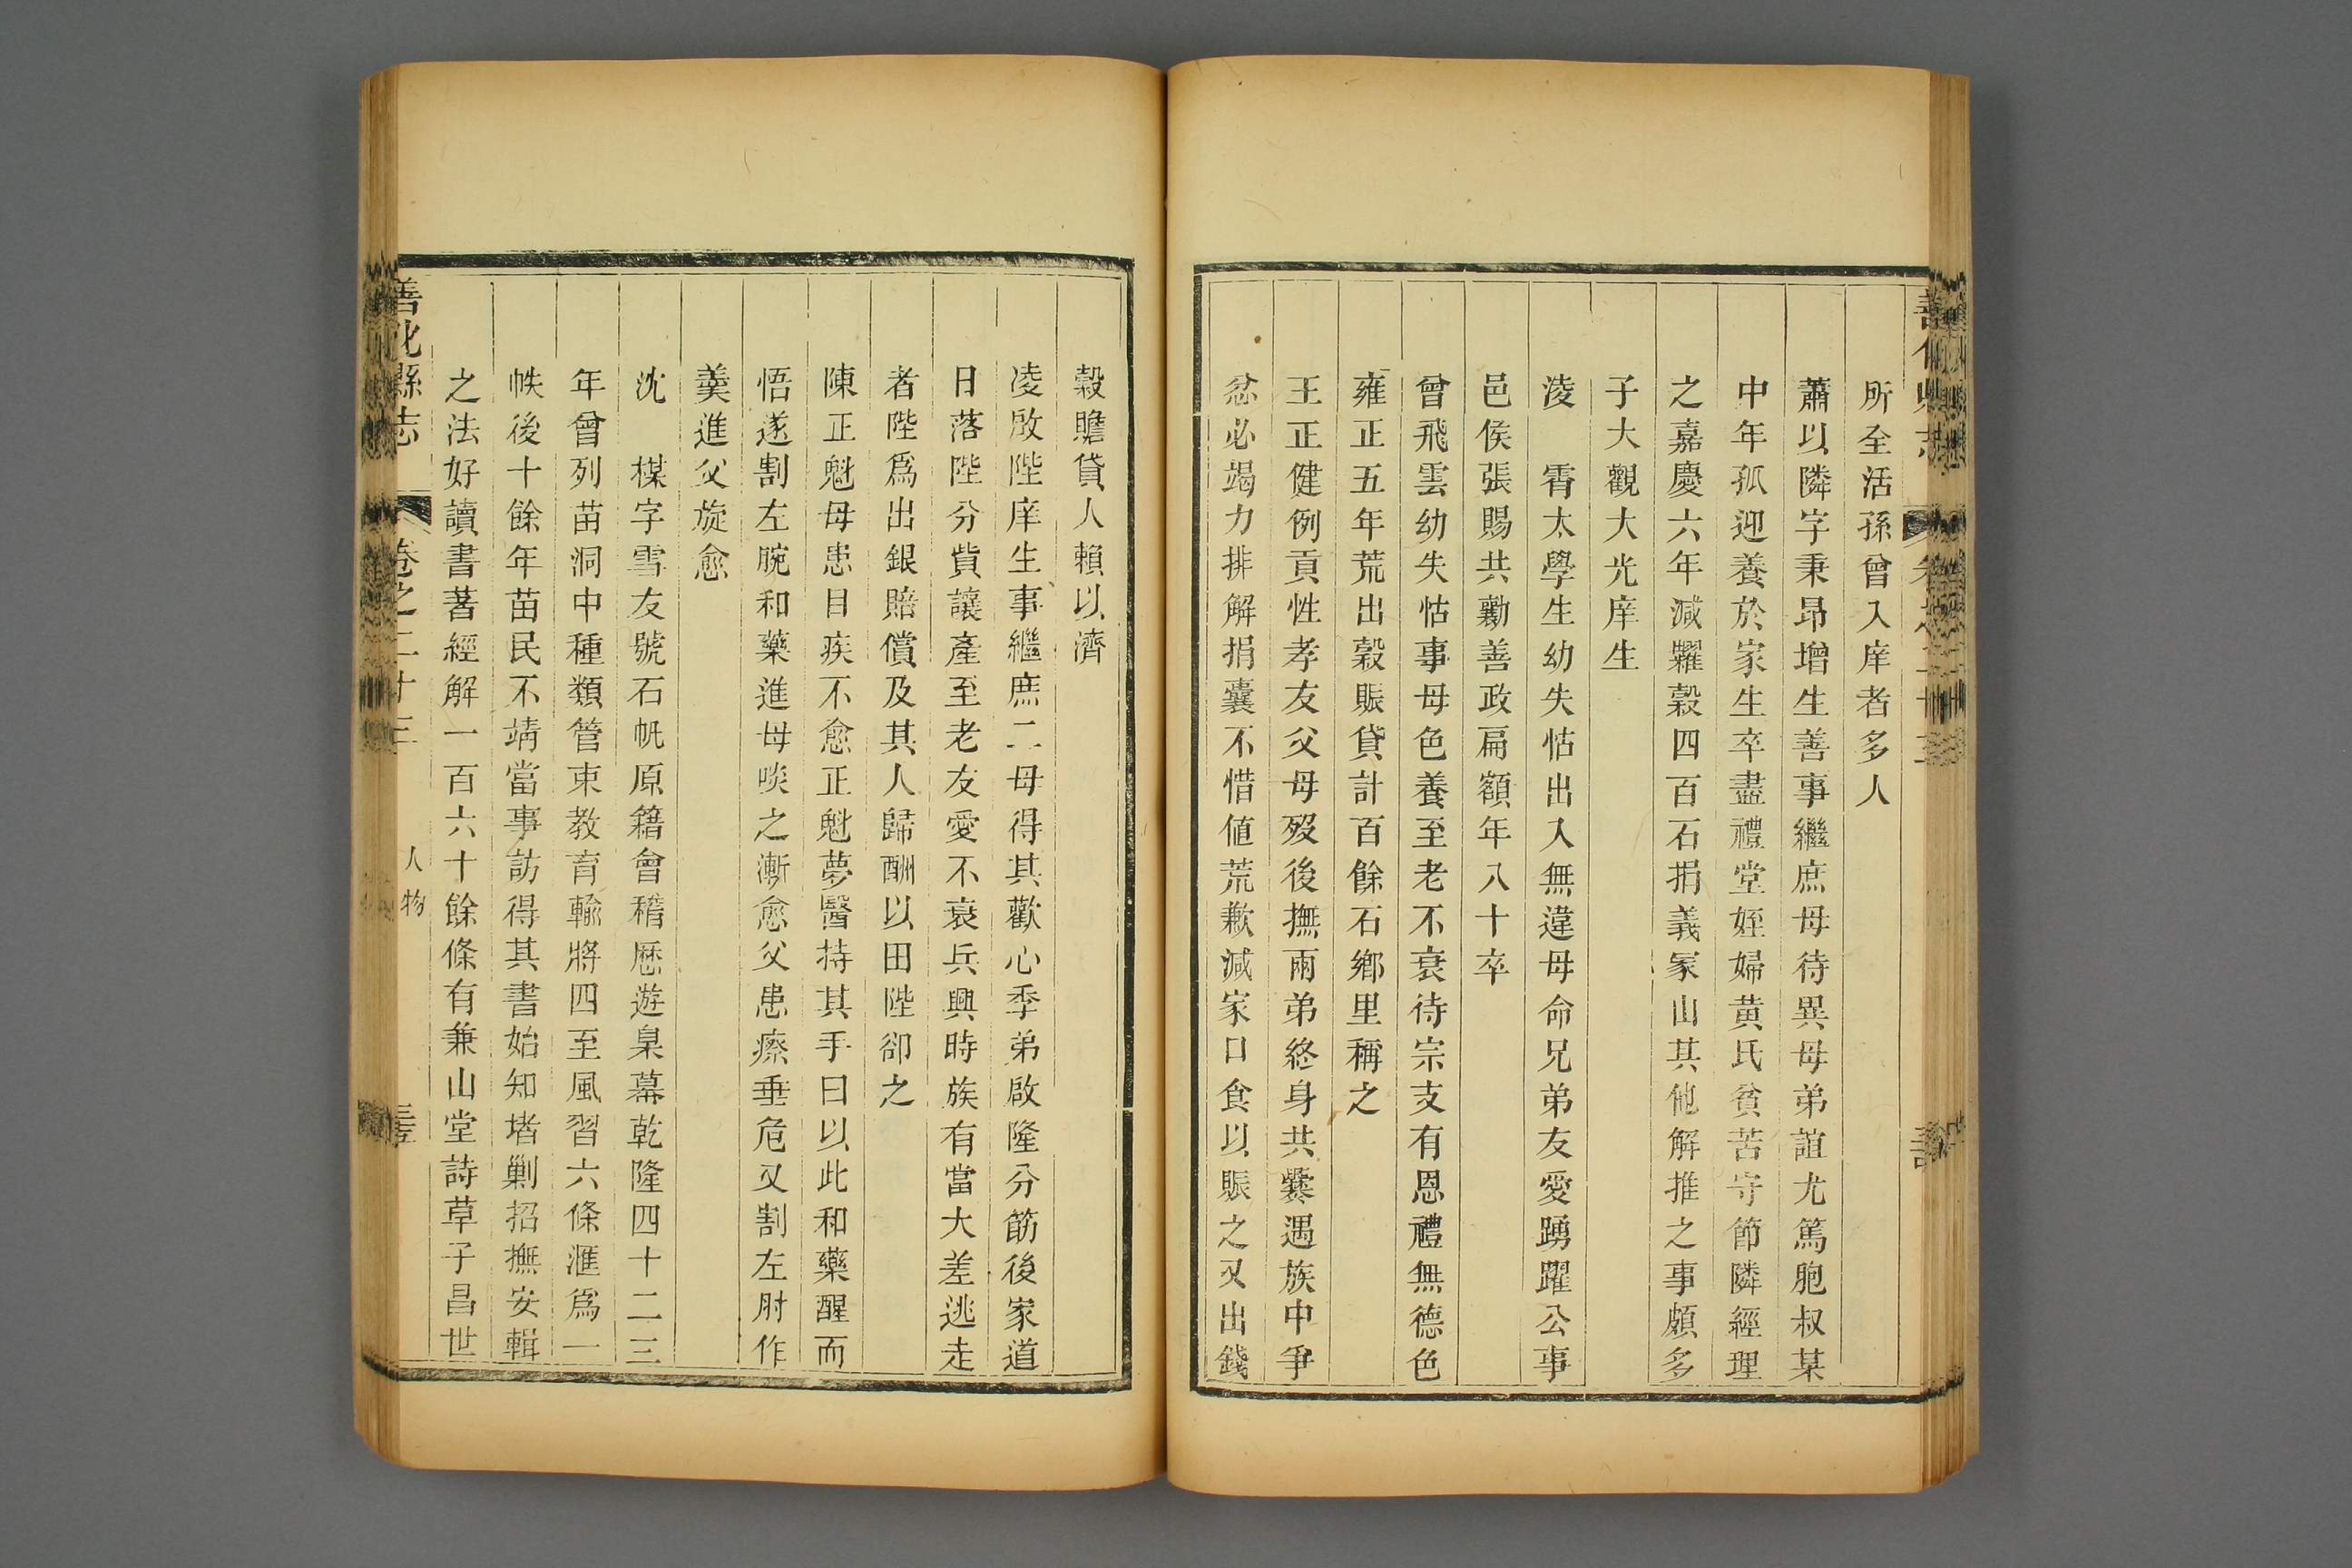 所全活孫曾入庠者多人
蕭以隣字秉昂增生善事繼庶母待異母弟誼尤篤胞叔某
中年孤迎養於家生卒盡禮堂姪婦黃氏貧苦守節隣經理
之嘉慶六年減糶穀四百石捐義冢山其他解推之事頗多
子大觀大光庠生
淩霄太學生幼失怙出入無違母命兄弟友愛踴躍公事
邑侯張賜共勷善政扁額年八十卒
曾飛雲幼失怙事母色養至老不衰待宗支有恩禮無德色
雍正五年荒出穀賑貸計百餘石鄉里稱之
王正健例貢性孝友父母歿後撫兩弟終身共爨遇族中爭
忿必竭力排解捐囊不惜值荒歉減家口食以賑之又出錢
穀贍貸人賴以濟
凌啟陛庠生事繼庶二母得其歡心季弟啟隆分筋後家道
日落陛分貲讓產至老友愛不衰兵興時族有當大差逃走
者陛爲出銀賠償及其人歸酬以田陛卻之
陳正魁母患目疾不愈正魁夢醫持其手曰以此和藥醒而
悟遂割左腕和藥進母啖之漸愈父患瘵垂危又割左肘作
羹進父旋愈
沈楳字雪友號石帆原籍會稽歷遊臬幕乾隆四十二三
年曾列苗洞中種類管束教育輸將四至風習六條滙爲一
帙後十餘年苗民不靖當事訪得其書始知堵剿招撫安輯
之法好讀書著經解一百六十餘條有兼山堂詩草子昌世
善化縣志
卷之二十三
人物